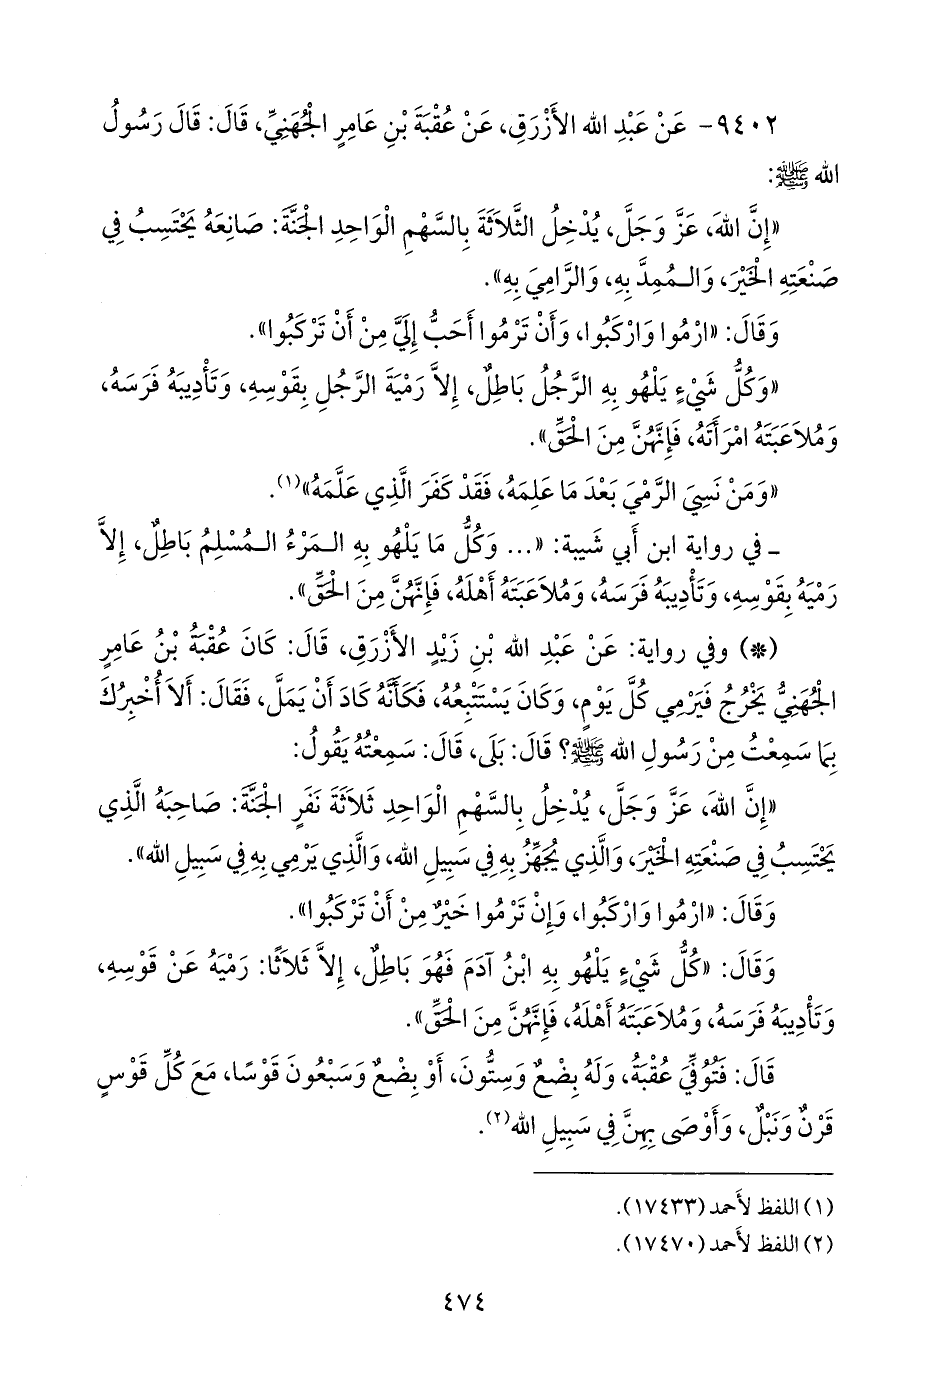 ٩٤٠٢- عَنْ عَبْدِ الله الأَزْرَقِ، عَنْ عُقْبَةَ بْنِ عَامِرٍ الْجُهَنِيِّ، قَالَ: قَالَ رَسُولُ
الله ﷺ:
«إِنَّ اللهَ، عَزَّ وَجَلَّ، يُدْخِلُ الثَّلاَثَةَ بِالسَّهْمِ الْوَاحِدِ الْجَنَّةَ: صَانِعَهُ يَحْتَسِبُ فِي
صَنْعَتِهِ الْخَيْرَ، وَالـمُمِدَّ بِهِ، وَالرَّامِيَ بِهِ».
وَقَالَ: «ارْمُوا وَارْكَبُوا، وَأَنْ تَرْمُوا أَحَبُّ إِلَيَّ مِنْ أَنْ تَرْكَبُوا».
«وَكُلُّ شَيْءٍ يَلْهُو بِهِ الرَّجُلُ بَاطِلٌ، إِلاَّ رَمْيَةَ الرَّجُلِ بِقَوْسِهِ، وَتَأْدِيبَهُ فَرَسَهُ،
وَمُلاَعَبَتَهُ امْرَأَتَهُ، فَإِنَّهُنَّ مِنَ الْحَقِّ».
«وَمَنْ نَسِيَ الرَّمْيَ بَعْدَ مَا عَلِمَهُ، فَقَدْ كَفَرَ الَّذِي عَلَّمَهُ»(١).
ـ في رواية ابن أبي شيبة: «... وَكُلُّ مَا يَلْهُو بِهِ الـمَرْءُ الـمُسْلِمُ بَاطِلٌ، إِلاَّ
رَمْيَهُ بِقَوْسِهِ، وَتَأْدِيبَهُ فَرَسَهُ، وَمُلاَعَبَتَهُ أَهْلَهُ، فَإِنَّهُنَّ مِنَ الْحَقِّ».
(*) وفي رواية: عَنْ عَبْدِ الله بْنِ زَيْدٍ الأَزْرَقِ، قَالَ: كَانَ عُقْبَةُ بْنُ عَامِرٍ
الْجُهَنِيُّ يَخْرُجُ فَيَرْمِي كُلَّ يَوْمٍ، وَكَانَ يَسْتَتْبِعُهُ، فَكَأَنَّهُ كَادَ أَنْ يَمَلَّ، فَقَالَ: أَلاَ أُخْبِرُكَ
بِمَا سَمِعْتُ مِنْ رَسُولِ الله ﷺ؟ قَالَ: بَلَى، قَالَ: سَمِعْتُهُ يَقُولُ:
«إِنَّ اللهَ، عَزَّ وَجَلَّ، يُدْخِلُ بِالسَّهْمِ الْوَاحِدِ ثَلاَثَةَ نَفَرٍ الْجَنَّةَ: صَاحِبَهُ الَّذِي
يَحْتَسِبُ فِي صَنْعَتِهِ الْخَيْرَ، وَالَّذِي يُجَهِّزُ بِهِ فِي سَبِيلِ الله، وَالَّذِي يَرْمِي بِهِ فِي سَبِيلِ الله».
وَقَالَ: «ارْمُوا وَارْكَبُوا، وَإِنْ تَرْمُوا خَيْرٌ مِنْ أَنْ تَرْكَبُوا».
وَقَالَ: «كُلُّ شَيْءٍ يَلْهُو بِهِ ابْنُ آدَمَ فَهُوَ بَاطِلٌ، إِلاَّ ثَلاَثًا: رَمْيَهُ عَنْ قَوْسِهِ،
وَتَأْدِيبَهُ فَرَسَهُ، وَمُلاَعَبَتَهُ أَهْلَهُ، فَإِنَّهُنَّ مِنَ الْحَقِّ».
قَالَ: فَتُوُفِّيَ عُقْبَةُ، وَلَهُ بِضْعٌ وَسِتُّونَ، أَوْ بِضْعٌ وَسَبْعُونَ قَوْسًا، مَعَ كُلِّ قَوْسٍ
قَرْنٌ وَنَبْلٌ، وَأَوْصَى بِهِنَّ فِي سَبِيلِ الله(٢).
(١) اللفظ لأَحمد (١٧٤٣٣).
(٢) اللفظ لأَحمد (١٧٤٧٠).
٤٧٤